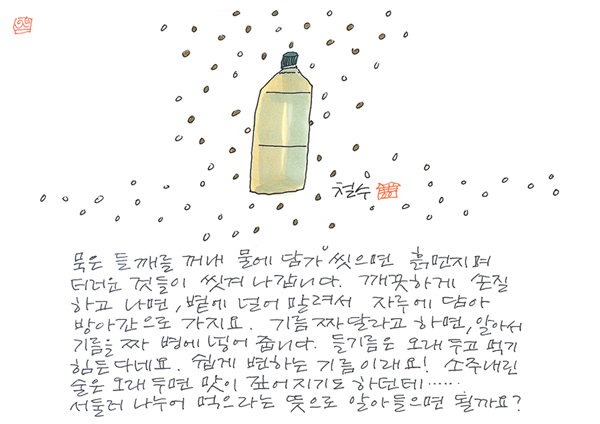 철수
묵은 들깨를 꺼내 물에 담가 씻으면 흙먼지며
더러운 것들이 씻겨 나갑니다. 깨끗하게 손질
하고 나면, 볕에 널어 말려서 자루에 담아
방아간으로 가지요. 기름 짜 달라고 하면, 알아서
기름을 짜 병에 넣어 줍니다. 들기름은 오래 두고 먹기
힘든다네요. 쉽게 변하는 기름이래요! 소주내린
술은 오래 두면 맛이 깊어지기도 하던데……
서둘러 나누어 먹으라는 뜻으로 알아들으면 될까요?